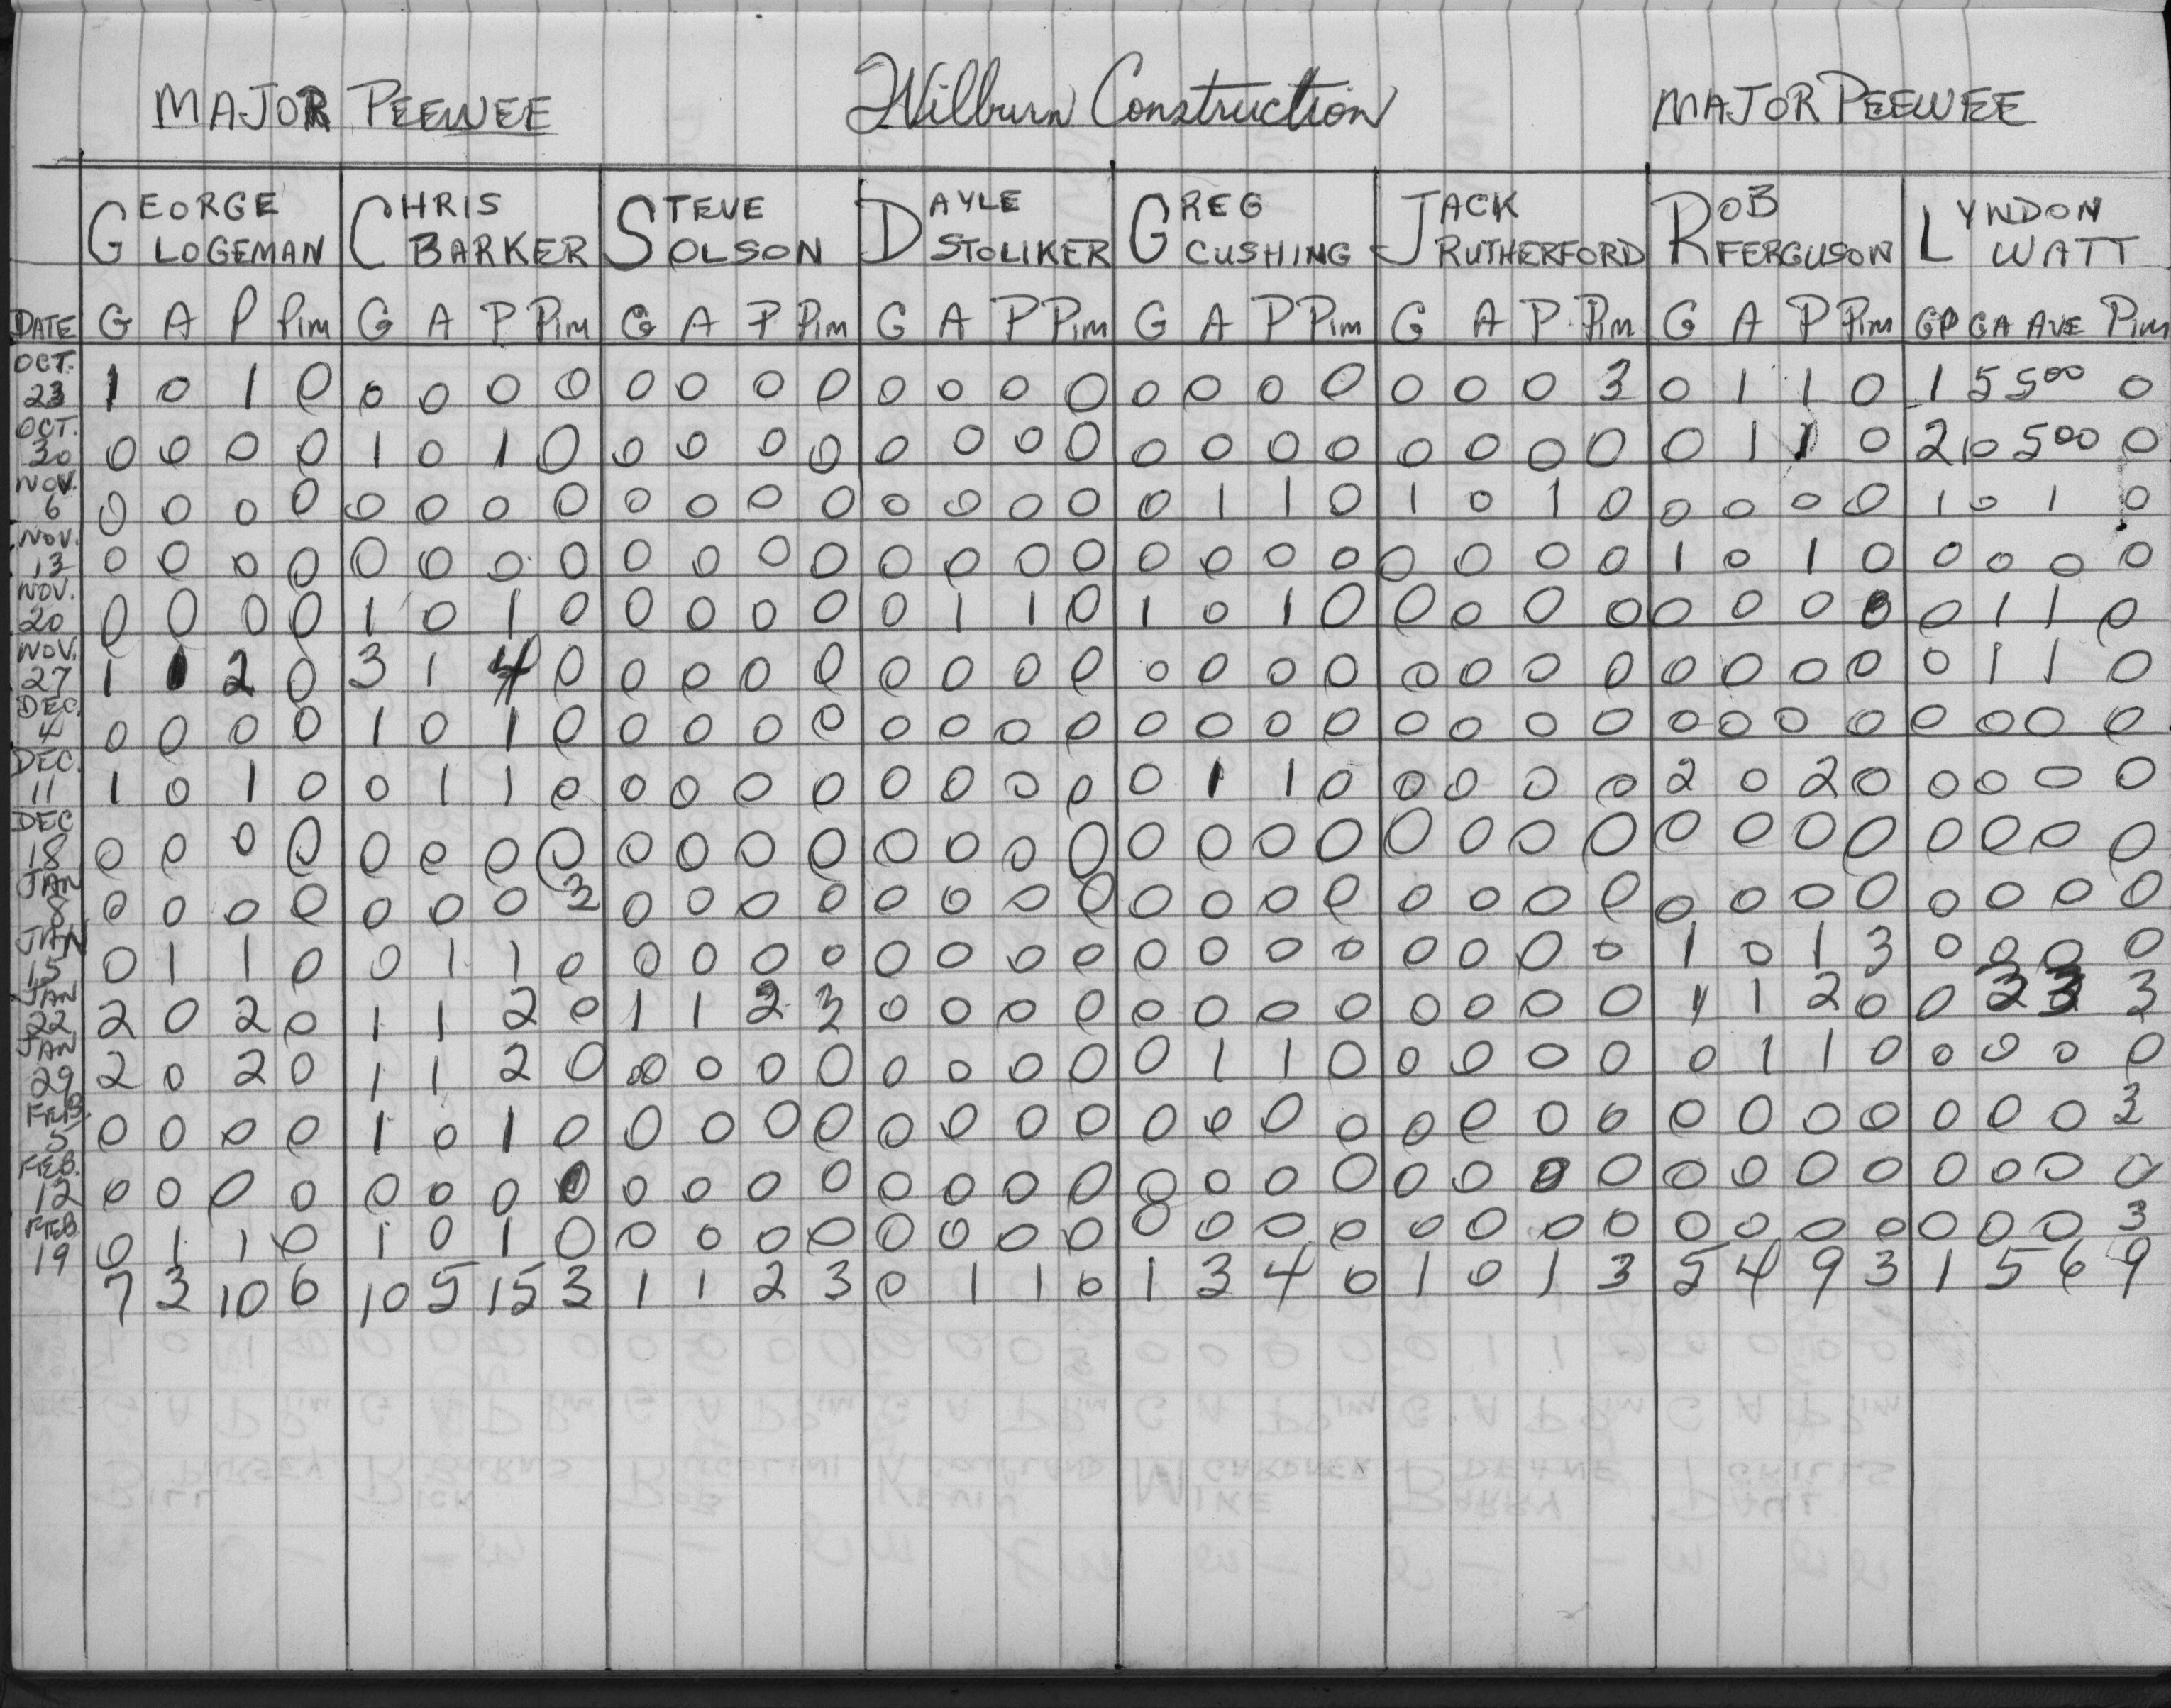 MAJOR PEEWEE Wilburn Construction MAJOR PEEWEE
GEORGE LOGEMAN CHRIS BARKER STEVE OLSON DAYLE STOLIKER GREG CUSHING JACK RUTHERFORD ROB FERGUSON LYNDON WATT
DATE G A P Pim G A P Pim G A P Pim G A P Pim G A P Pim G A P Pim G A P Pim GP GA AVE Pim
OCT. 23 1 0 1 0 0 0 0 0 0 0 0 0 0 0 0 0 0 0 0 0 0 0 0 3 0 1 1 0 1 5 500 0
OCT. 30 0 0 0 0 1 0 1 0 0 0 0 0 0 0 0 0 0 0 0 0 0 0 0 0 0 1 1 0 2 10 500 0
NOV. 6 0 0 0 0 0 0 0 0 0 0 0 0 0 0 0 0 0 1 1 0 1 0 1 0 0 0 0 0 1 0 1 0
NOV. 13 0 0 0 0 0 0 0 0 0 0 0 0 0 0 0 0 0 0 0 0 0 0 0 0 1 0 1 0 0 0 0 0
NOV. 20 0 0 0 0 1 0 1 0 0 0 0 0 0 1 1 0 1 0 1 0 0 0 0 0 0 0 0 0 0 1 1 0
NOV. 27 1 1 2 0 3 1 4 0 0 0 0 0 0 0 0 0 0 0 0 0 0 0 0 0 0 0 0 0 0 1 1 0
DEC. 4 0 0 0 0 1 0 1 0 0 0 0 0 0 0 0 0 0 0 0 0 0 0 0 0 0 0 0 0 0 0 0 0
DEC. 11 1 0 1 0 0 1 1 0 0 0 0 0 0 0 0 0 0 1 1 0 0 0 0 0 2 0 2 0 0 0 0 0
DEC 18 0 0 0 0 0 0 0 0 0 0 0 0 0 0 0 0 0 0 0 0 0 0 0 0 0 0 0 0 0 0 0 0
JAN 8 0 0 0 0 0 0 0 3 0 0 0 0 0 0 0 0 0 0 0 0 0 0 0 0 0 0 0 0 0 0 0 0
JAN 15 0 1 1 0 0 1 1 0 0 0 0 0 0 0 0 0 0 0 0 0 0 0 0 0 1 0 1 3 0 0 0 0
JAN 22 2 0 2 0 1 1 2 0 1 1 2 3 0 0 0 0 0 0 0 0 0 0 0 0 1 1 2 0 0 3 3 3
JAN 29 2 0 2 0 1 1 2 0 0 0 0 0 0 0 0 0 0 1 1 0 0 0 0 0 0 1 1 0 0 0 0 0
FEB. 5 0 0 0 0 1 0 1 0 0 0 0 0 0 0 0 0 0 0 0 0 0 0 0 0 0 0 0 0 0 0 0 3
FEB. 12 0 0 0 0 0 0 0 0 0 0 0 0 0 0 0 0 0 0 0 0 0 0 0 0 0 0 0 0 0 0 0 0
FEB. 19 0 1 1 0 1 0 1 0 0 0 0 0 0 0 0 0 0 0 0 0 0 0 0 0 0 0 0 0 0 0 0 3
7 3 10 0 10 5 15 3 1 1 2 3 0 1 1 0 1 3 4 0 1 0 1 3 5 4 9 3 1 5 6 9